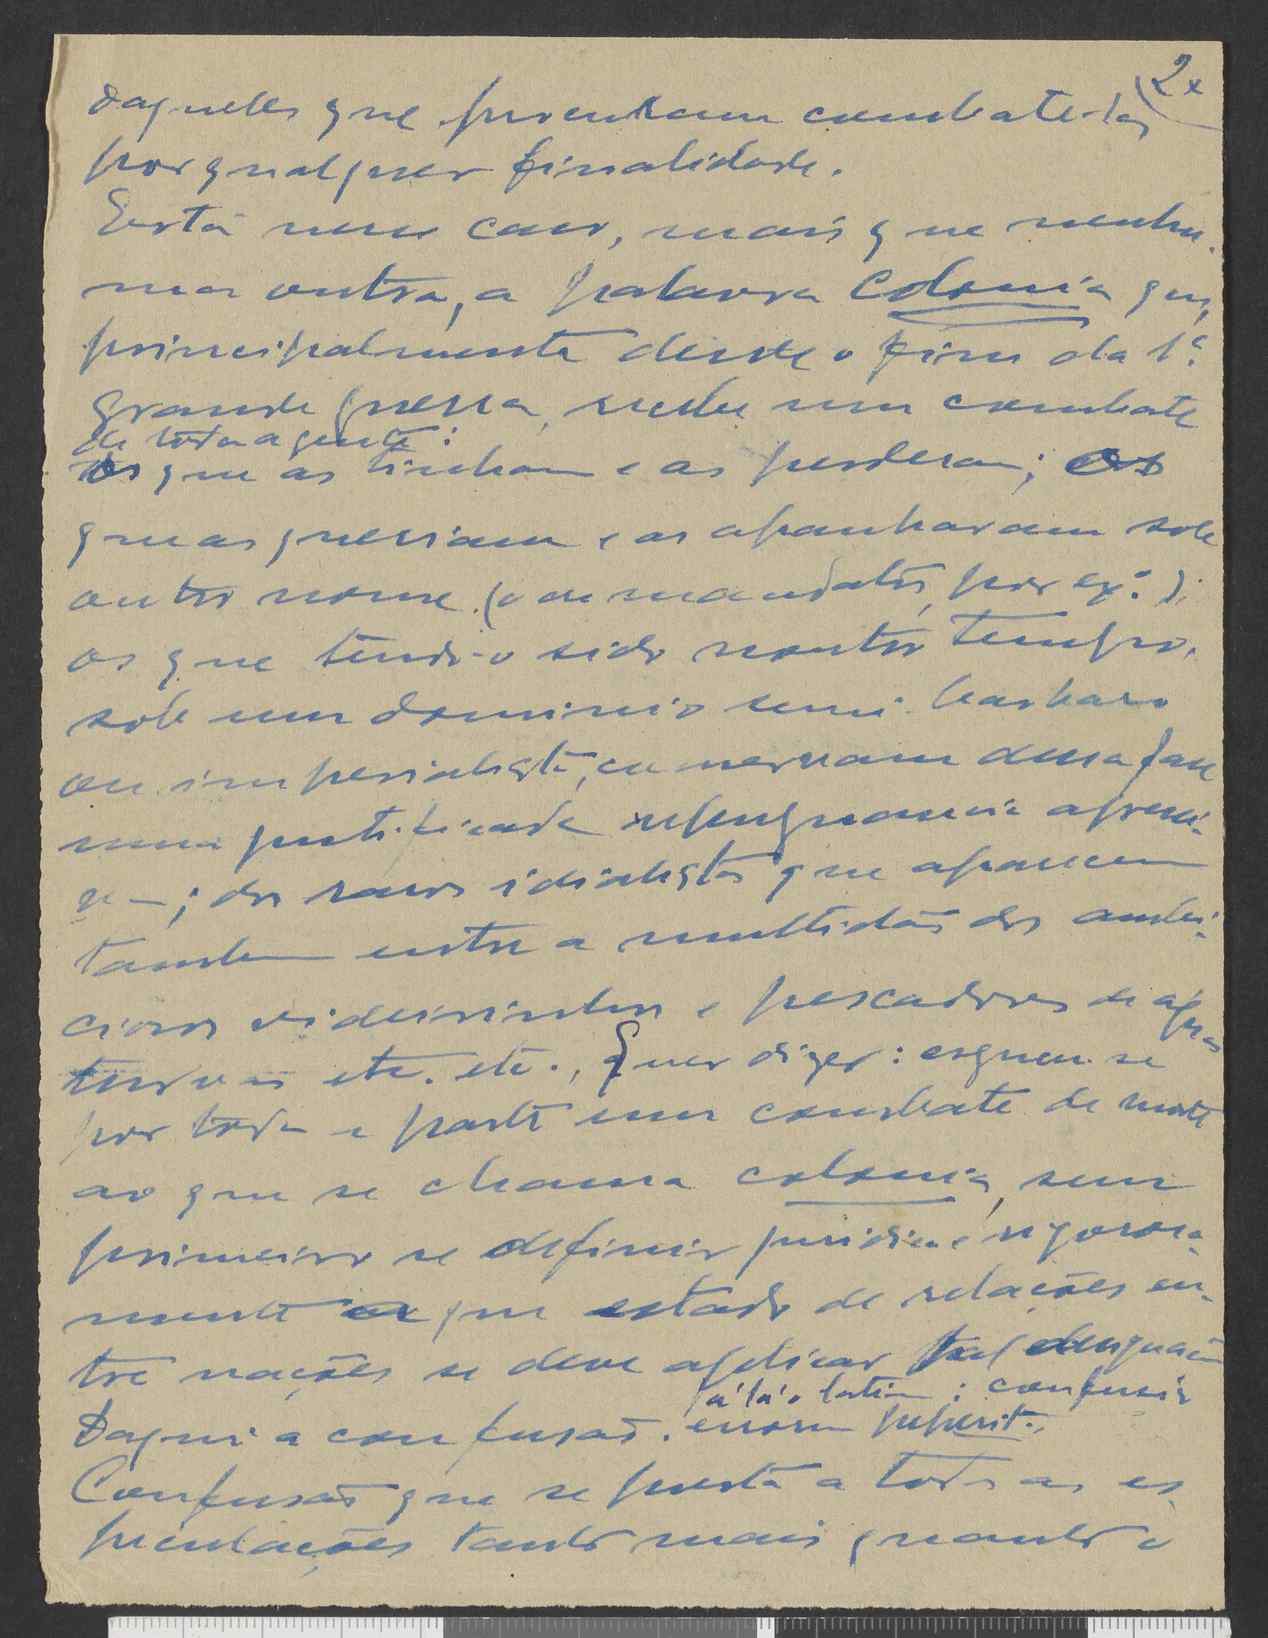 2x
daqueles que procuram combate-las
por qualquer finalidade.
Está nesse caso, mais que nenhu-
ma outra, a palavra colonia que,
principalmente desde o fim da 1ª
grande guerra, recebe um combate
de toda a gente:
dos que as tinham e as perderam; os
que as queriam e as apanharam sob
outro nome (o de mandatos, por ex.º);
os que tendo-o sido noutro tempo,
sob um dominio semi-barbaro
ou imperialista, conservam dessa fase
uma justificada repugnancia
; dos raros idialistas que aparecem
tambem entre a multidão dos ambi-
ciosos videirinhos e pescadores de aguas
turvas etc. etc., Quer dizer: ergueu-se
por toda a parte um combate de morte
ao que se chama colonia, sem
primeiro se definir juridica e rigorosa-
mente a que estado de relações en-
tre nações se deve aplicar tal designação
lá lá o latim: confusio
Daqui a confusão. errorum peperit.
Confusão que se presta a todas as es-
peculações tanto mais quanto o